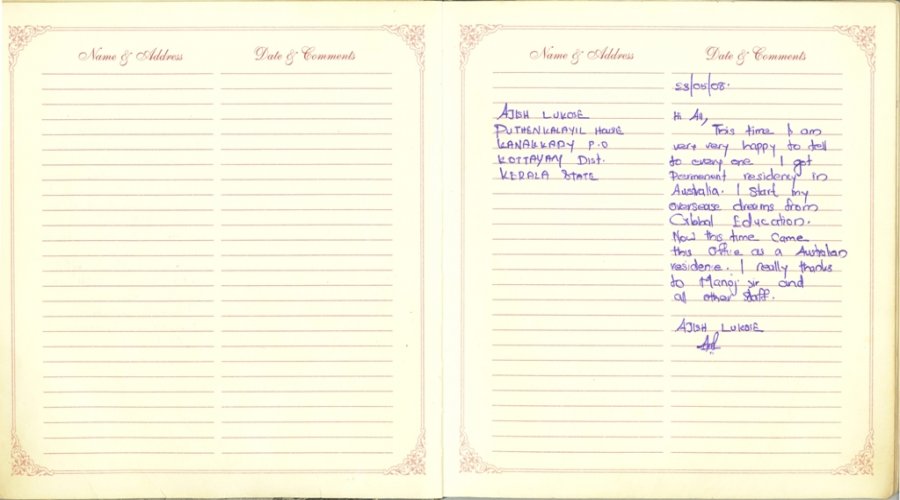 Name & Address
Date & Comments
Name & Address
Date & Comments
23/05/08.
AJISH LUKOSE
PUTHENKALAYIL HOUSE
KANAKKARY P.O
KOTTAYAM Dist.
KERALA STATE
Hi All,
This time I am
very very happy to tell
to every one I got
permenent residency in
Australia. I start my
oversease dreams from
Global Education.
Now this time came
this office as a Australian
residence. I really thanks
to Manoj sir and
all other staff.
AJISH LUKOSE